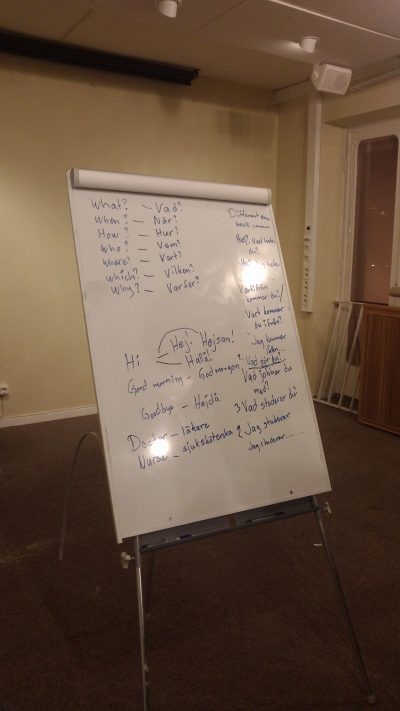 What? – Vad?
When? – När?
How? – Hur?
Who? – Vem?
Where? – Vart?
Which? – Vilken?
Why? – Varför?
Hi – Hej. Hejsan!
Hallå!
Good morning – God morgon
Goodbye – Hejdå
Doctor – läkare
Nurse – sjuksköterska
Different
Hej! Vad heter
du?
heter
Varifrån
kommer du?/
Vart kommer
du ifrån?
Jag kommer
från...
Vad gör du?
Vad jobbar du
med?
3 Vad studerar du?
2 Jag studerar
Jag studerar......